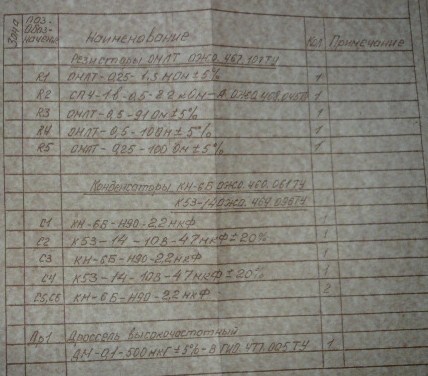 Зона Поз. обоз-начение Наименование Кол Примечание
Резисторы ОМЛТ ОЖ0.467.107ТУ
R1 ОМЛТ-0,25-1,5 мОм±5% 1
R2 СП4-1в-0,5-82 кОм-А ОЖ0.468.045ТУ 1
R3 ОМЛТ-0,5-91 Ом±5% 1
R4 ОМЛТ-0,5-10 Ом±5% 1
R5 ОМЛТ-0,25-100 Ом±5% 1
Конденсаторы КМ-6Б ОЖ0.460.061ТУ
К53-14 ОЖ0.464.096ТУ
C1 КМ-6Б-Н90-2,2 мкФ 1
C2 К53-14-10В-47 мкФ±20% 1
C3 КМ-6Б-Н90-2,2 мкФ 1
C4 К53-14-10В-47 мкФ±20% 1
C5,C6 КМ-6Б-Н90-2,2 мкФ 2
Др1 Дроссель высокочастотный
ДМ-0,1-500 мкГ±5%-В ГИ0.477.005ТУ 1